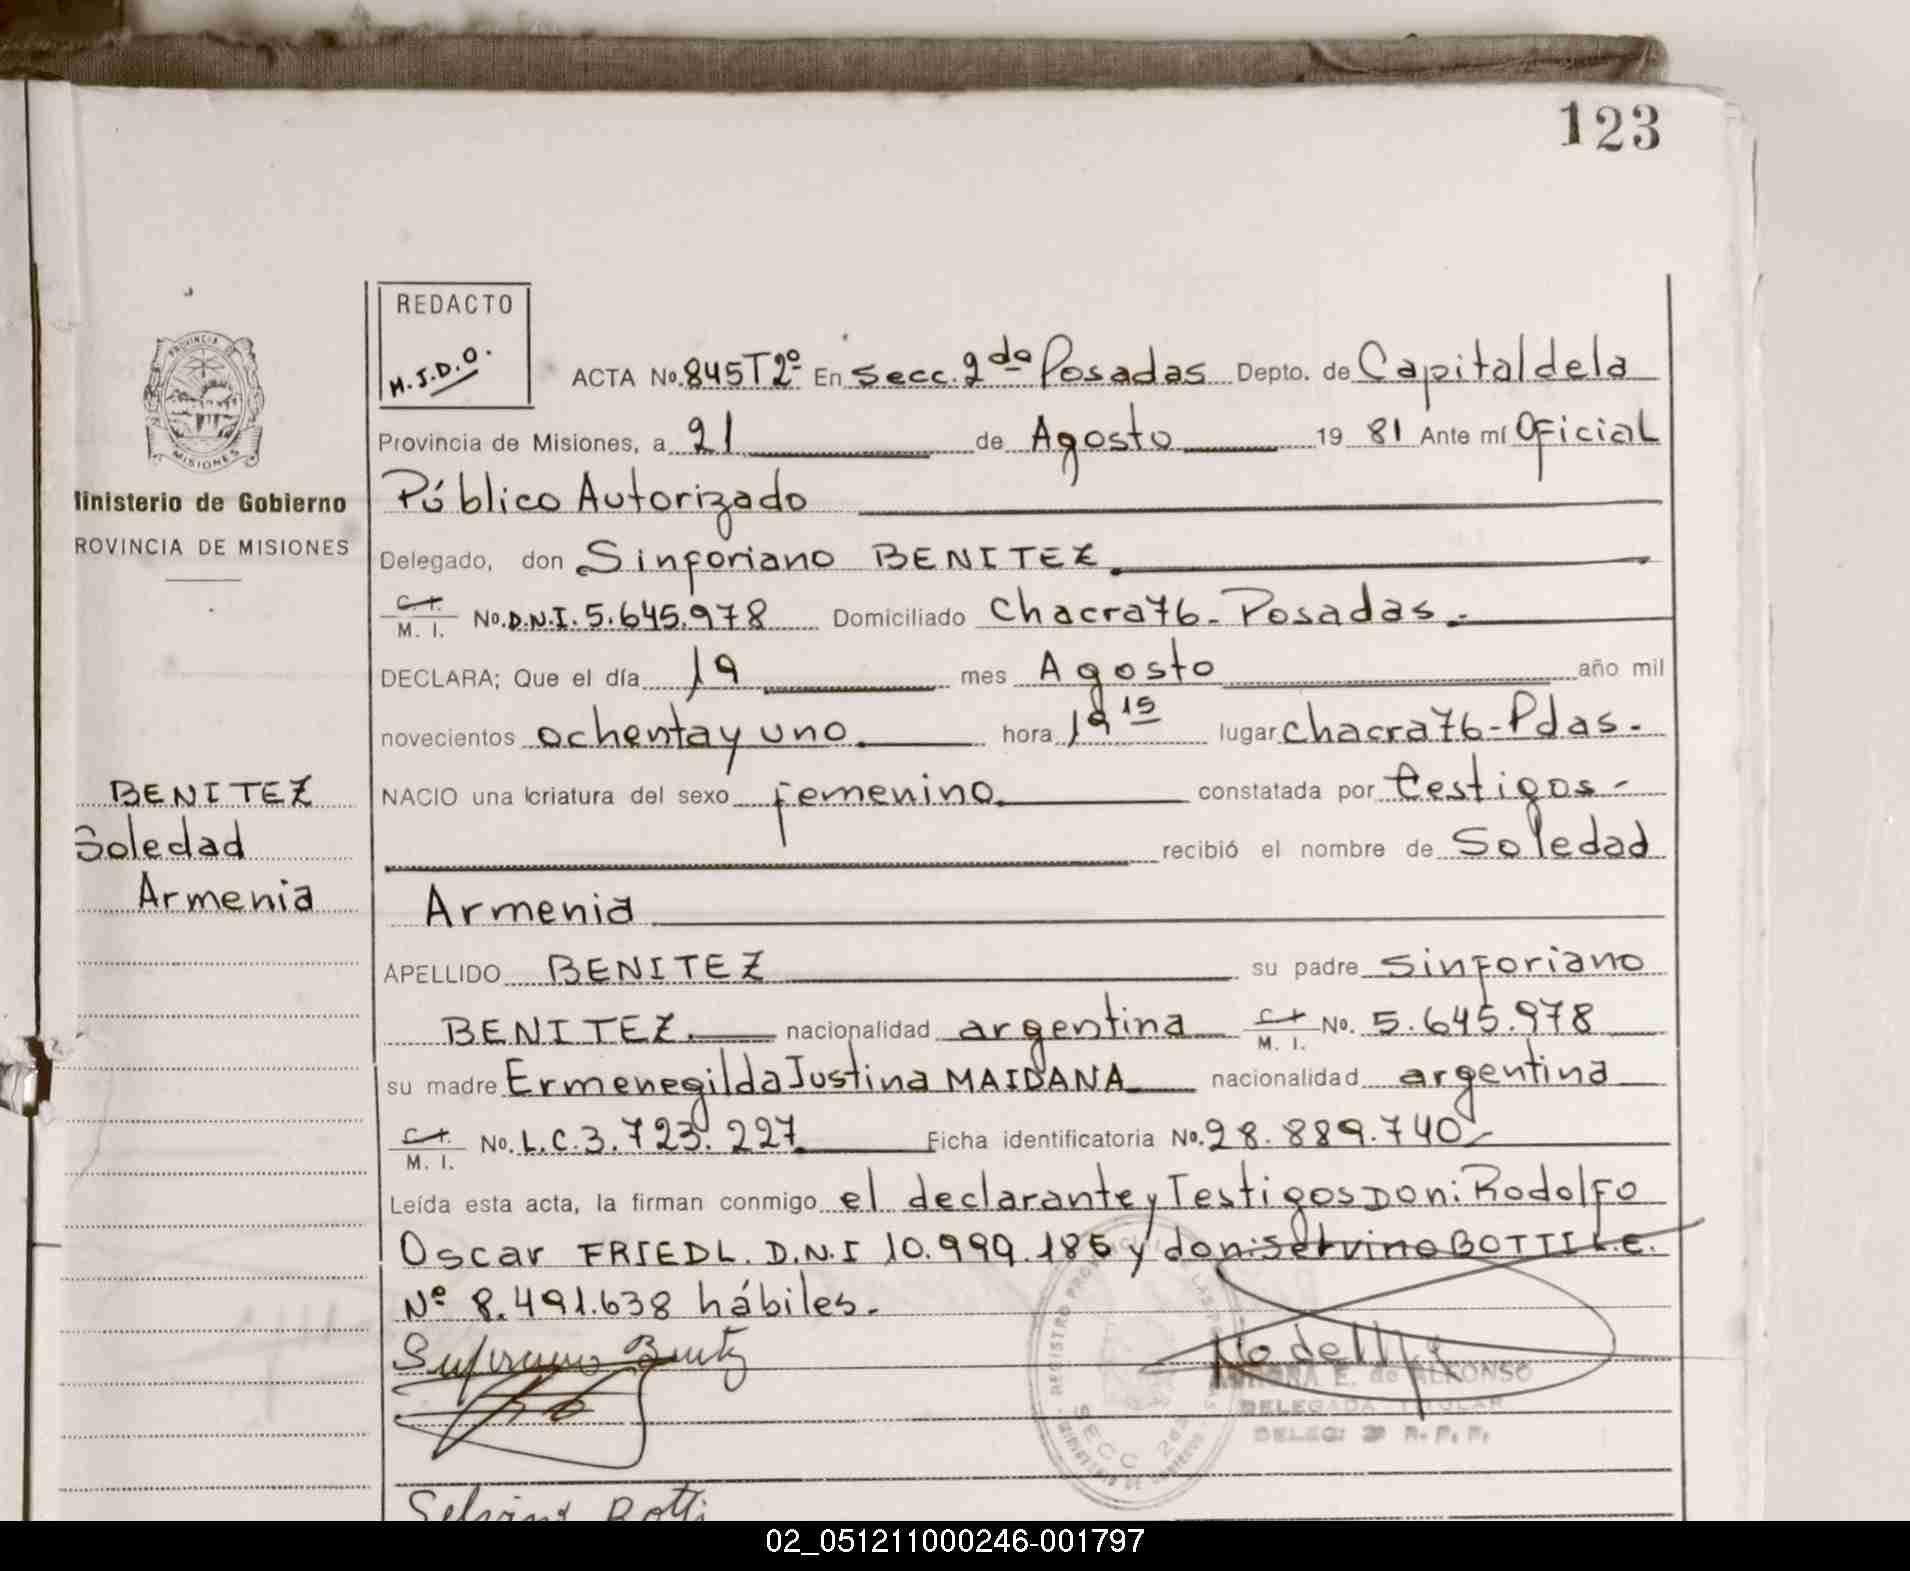 123
REDACTO
M.J.D.O.
ACTA No. 845T2º En Secc. 2da Posadas Depto. de Capital de la
Provincia de Misiones, a 21 de Agosto 19 81 Ante mí Oficial
Público Autorizado
Delegado, don Sinforiano BENITEZ.
C. I. M. I. No. D.N.I. 5.645.978 Domiciliado Chacra 76 - Posadas.-
DECLARA; Que el día 19 mes Agosto año mil
novecientos ochenta y uno. hora 19 15 lugar chacra 76 - Pdas.-
NACIO una criatura del sexo femenino. constatada por testigos-
recibió el nombre de Soledad
Armenia
APELLIDO BENITEZ su padre Sinforiano
BENITEZ. nacionalidad argentina C. I. M. I. No. 5.645.978
su madre Ermenegilda Justina MAIDANA nacionalidad argentina
C. I. M. I. No. L.C. 3.723.227. Ficha identificatoria No. 28.889.740-
Leída esta acta, la firman conmigo el declarante y Testigos Don: Rodolfo
Oscar FRIEDL. D.N.I 10.999.185 y don: Selvino BOTTI L.E.
Nº 8.491.638 hábiles.-
PROVINCIA DE
MISIONES
Ministerio de Gobierno
PROVINCIA DE MISIONES
BENITEZ
Soledad
Armenia
REGISTRO
SECC 2da
E. de ALFONSO
DELEGADA TITULAR
Selvino Botti
02_051211000246-001797